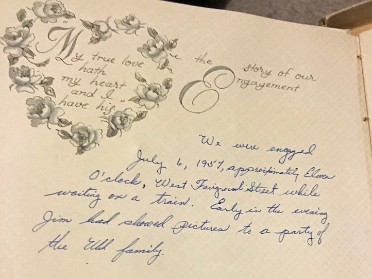 My true love
hath
my heart
and I
have his"
the Story of our
Engagement
We were engaged
July 6, 1957, approximately Eleven
O'clock, West Street while
waiting on a train. Early in the evening
Jim had showed pictures to a party of
the family.